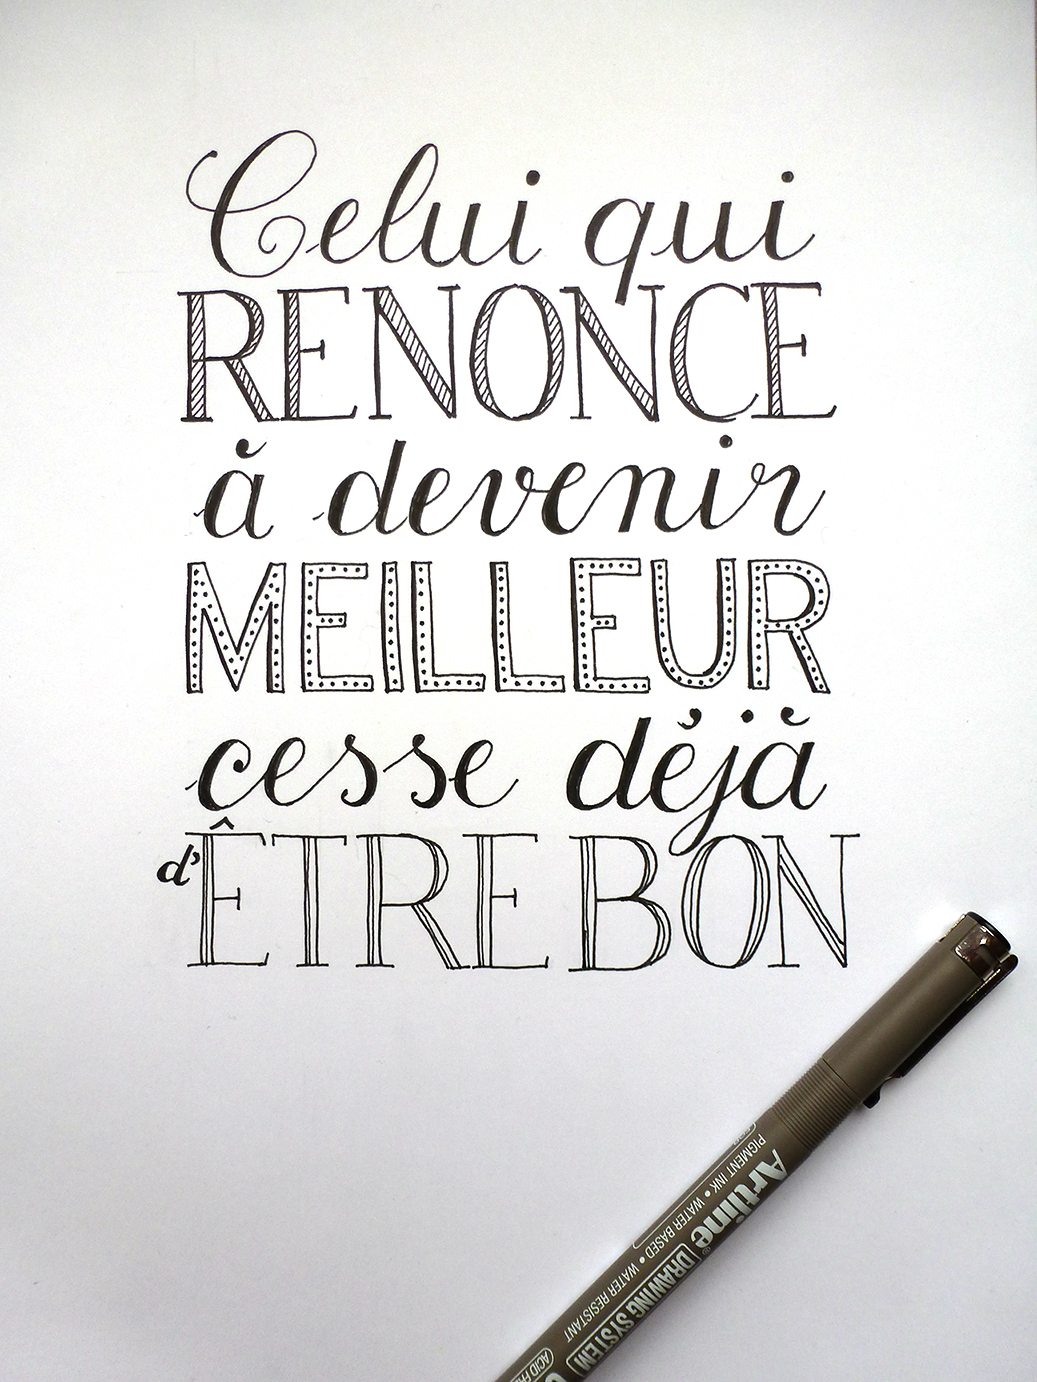 Celui qui
RENONCE
à devenir
MEILLEUR
cesse déjà
d'ÊTRE BON
Artline
PIGMENT INK • WATER BASED • WATER RESISTANT
DRAWING SYSTEM